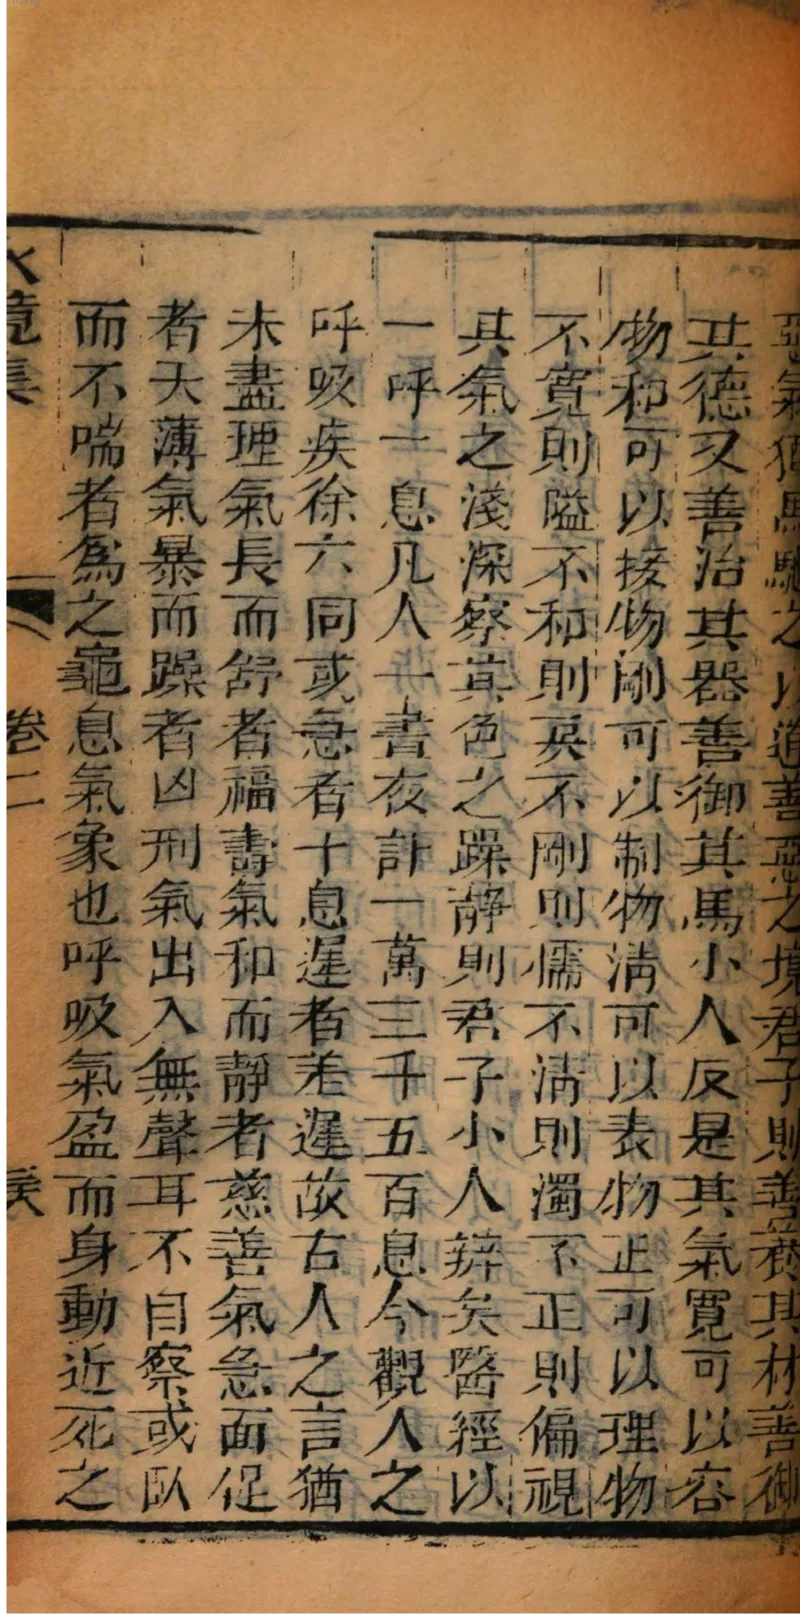 惡氣猶馬馳之以道善惡之境君子則善養其材善御
其德又善治其器善御其馬小人反是其氣寬可以容
物和可以接物剛可以制物淸可以表物正可以理物
不寬則隘不和則戾不剛則懦不淸則濁不正則偏視
其氣之淺深察其色之躁靜則君子小人辨矣醫經以
一呼一息凡人一晝夜計一萬三千五百息今觀人之
呼吸疾徐六同或急者十息遲者差遲故古人之言猶
未盡理氣長而舒者福壽氣和而靜者慈善氣急面促
者夭薄氣暴而躁者凶刑氣出入無聲耳不自察或臥
而不喘者爲之龜息氣象也呼吸氣盈而身動近死之
水鏡集 卷二